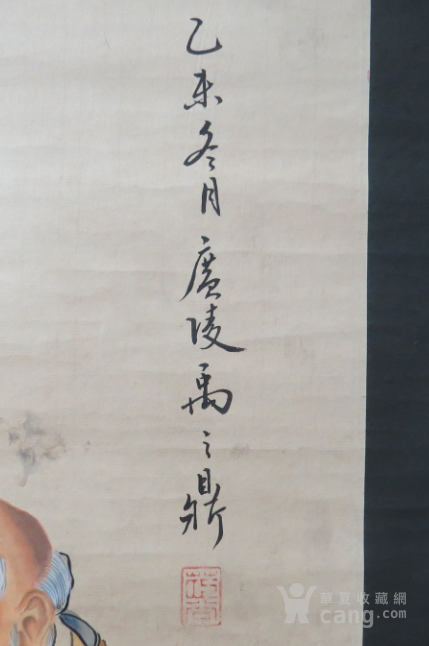 乙未冬月廣陵禹之鼎
華夏收藏網
cang.com